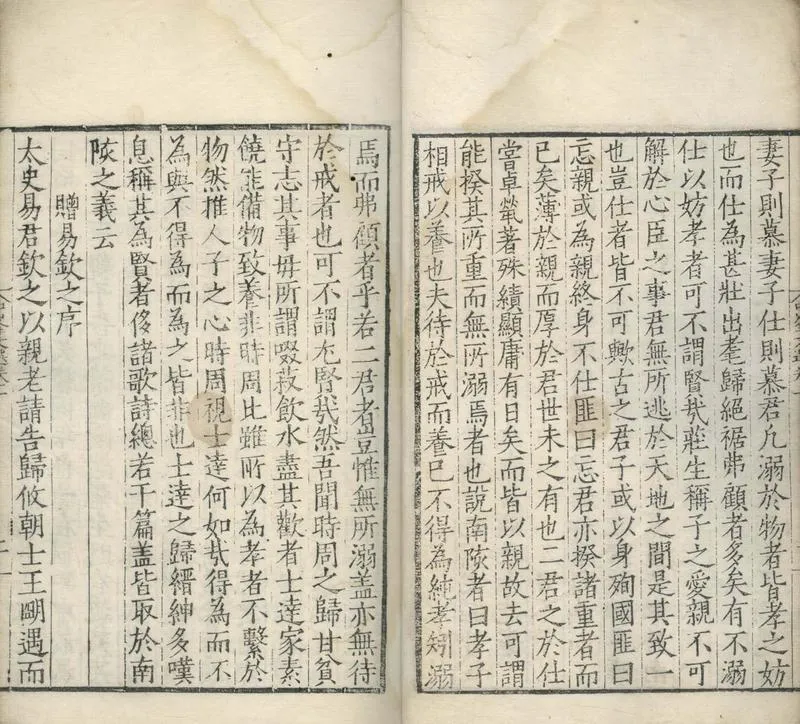 妻子則慕妻子仕則慕君凡溺於物者皆孝之妨
也而仕為甚壯出耄歸絕裾弗顧者多矣有不溺
仕以妨孝者可不謂賢㢤莊生稱子之愛親不可
解於心臣之事君無所逃於天地之間是其致一
也豈仕者皆不可歟古之君子或以身殉國匪曰
忘親或為親終身不仕匪曰忘君亦揆諸重者而
已矣薄於親而厚於君世未之有也二君之於仕
甞卓犖著殊績顯庸有日矣而皆以親故去可謂
能揆其所重而無所溺焉者也說南陔者曰孝子
相戒以養也夫待於戒而養已不得為純孝矧溺
焉而弗顧者乎若二君者豈惟無所溺盖亦無待
於戒者也可不謂尤賢㢤然吾聞時周之歸甘貧
守志其事毋所謂啜菽飲水盡其歡者士達家素
饒能備物致養非時周比雖所以為孝者不繫於
物然推人子之心時周視士達何如㢤得為而不
為與不得為而為之皆非也士達之歸縉紳多嘆
息稱其為賢者侈諸歌詩總若干篇盖皆取於南
陔之義云
贈易欽之序
太史易君欽之以親老請告歸攸朝士王㓪遇而